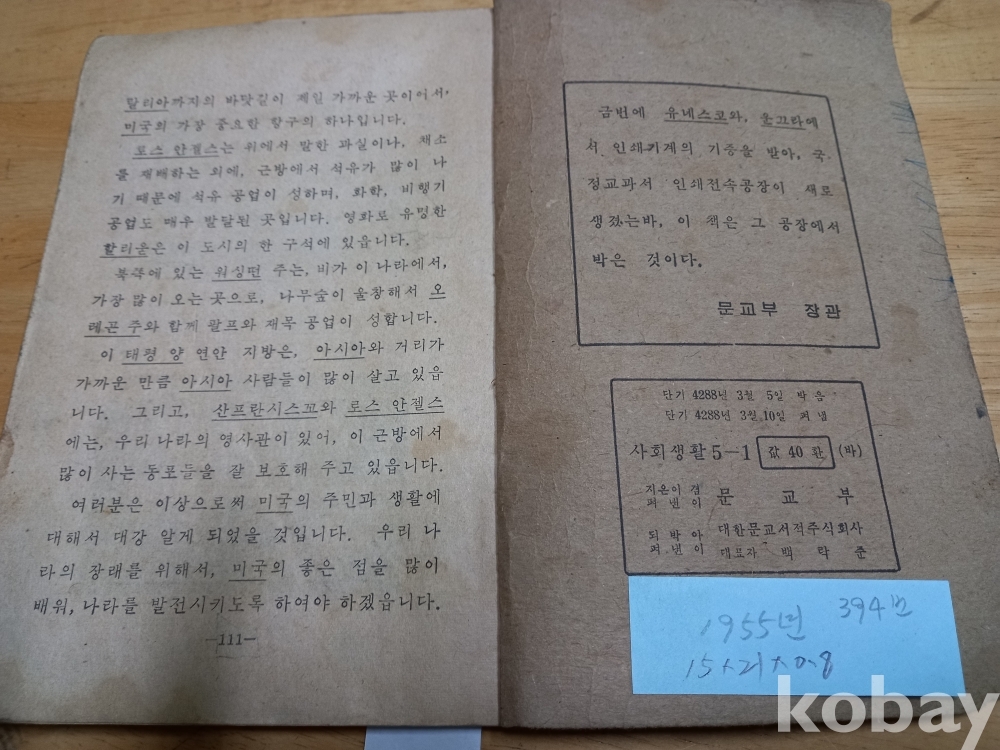 랄리아까지의 바닷길이 제일 가까운 곳이어서,
미국의 가장 중요한 항구의 하나입니다.
로스 안젤스는 위에서 말한 과실이나, 채소
를 재배하는 외에, 근방에서 석유가 많이 나
기 때문에 석유 공업이 성하며, 화학, 비행기
공업도 매우 발달된 곳입니다. 영화로 유명한
할리웃은 이 도시의 한 구석에 있읍니다.
북쪽에 있는 워싱턴 주는, 비가 이 나라에서,
가장 많이 오는 곳으로, 나무숲이 울창해서 오
레곤 주와 함께 팔프와 재목 공업이 성합니다.
이 태평 양 연안 지방은, 아시아와 거리가
가까운 만큼 아시아 사람들이 많이 살고 있읍
니다. 그리고, 산프란시스꼬와 로스 안젤스
에는, 우리 나라의 영사관이 있어, 이 근방에서
많이 사는 동포들을 잘 보호해 주고 있읍니다.
여러분은 이상으로써 미국의 주민과 생활에
대해서 대강 알게 되었을 것입니다. 우리 나
라의 장래를 위해서, 미국의 좋은 점을 많이
배워, 나라를 발전시키도록 하여야 하겠읍니다.
—111—
금번에 유네스코와, 운끄라에
서 인쇄기계의 기증을 받아, 국
정교과서 인쇄전속공장이 새로
생겼는바, 이 책은 그 공장에서
박은 것이다.
문교부 장관
단기 4288년 3월 5일 박음
단기 4288년 3월 10일 펴냄
사회생활 5—1 값 40 환 (바)
지은이 겸
펴낸이 문교부
되박아
펴낸이 대한문교서적주식회사
대표자 백락준
1955년 394번
15×21×0.8
kobay